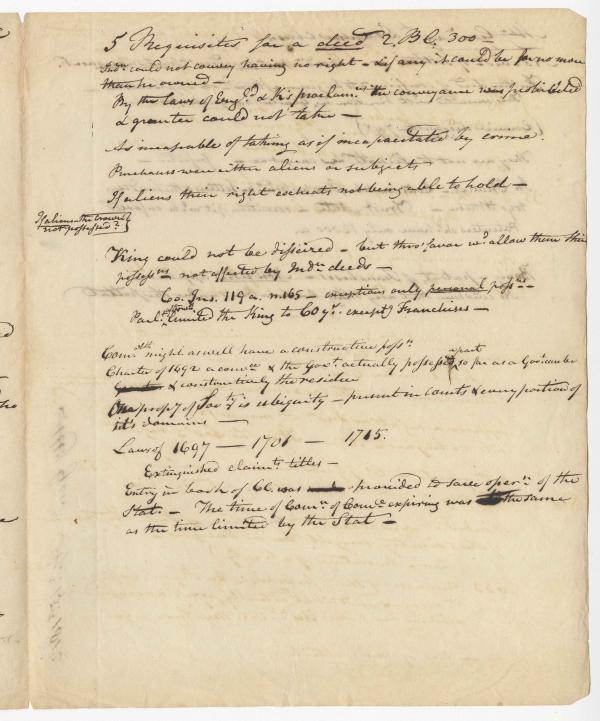 5 Requisites for a deed 2. Bl. 300
Indns could not convey having no right – & if any it could be for no more
than he owned –
By the laws of Engd & K's proclamns the conveyance was prohibited
& grantee could not take –
As incapable of taking as if incapacitated by crime.
Purchasers were either aliens or subjects
If aliens their right escheats not being able to hold –
If aliens the Crown
not possessed?
King could not be disseized – but thro' favor wd allow them their
possessns – not affected by Indn deeds –
Co. Ins. 119 a. n. 165 – exceptions only personal possns –
Parlt limited the King to 60 yrs except Franchises –
Comwlth might as well have a constructive possn
Charter of 1692 a convce & the Govt actually possessed apart so far as a Govt can be
& constructively the residue
One propty of Sovty is ubiquity – present in Courts & every portion of
its domains –
Laws of 1697 — 1701 — 1715.
Extinguished claimts titles –
Entry in book of Cl. was provided to save opern of the
Stat. – The time of Comrs of Comds expiring was the same
as the time limited by the Stat –